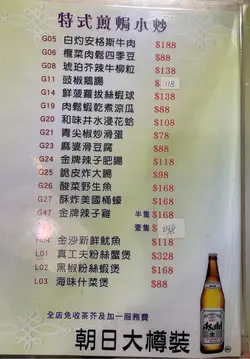 特式煎焗小炒
G05 白灼安格斯牛肉 $188
G06 欖菜肉鬆四季豆 $88
G08 琥珀芥辣牛柳粒 $138
G11 豉椒鵝腸 $108
G14 鮮菠蘿拔絲蝦球 $138
G19 肉鬆蝦乾煮涼瓜 $88
G20 和味井水浸花蛤 $108
G21 青尖椒炒滑蛋 $78
G23 麻婆滑豆腐 $88
G24 金牌辣子肥腸 $118
G25 脆皮炸大腸 $98
G26 酸菜野生魚 $168
G27 酥炸美國桶蠔 $168
G47 金牌辣子雞 半隻 $168
壹隻 $298
H04 金沙新鮮魷魚 $118
L01 真工夫粉絲蟹煲 $328
L02 黑椒粉絲蝦煲 $168
L03 海味什菜煲 $88
全店免收茶芥及加一服務費
Asahi
朝日大樽裝